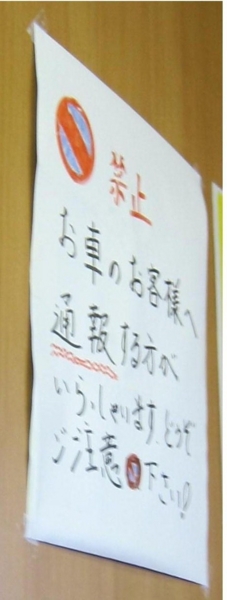 禁止
お車のお客様へ
通報する方が
いらっしゃいます。どうぞ
ご注意下さい!